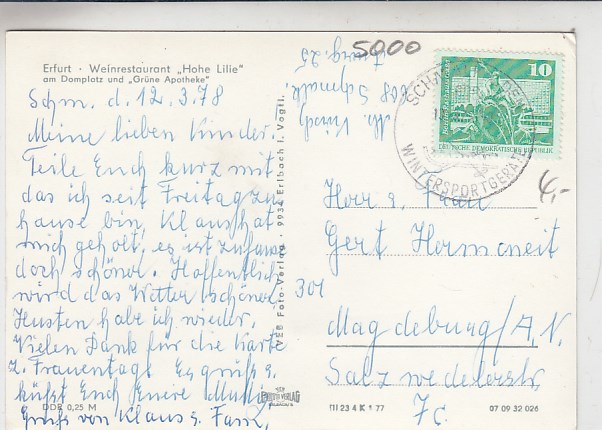 Erfurt · Weinrestaurant „Hohe Lilie"
am Domplatz und „Grüne Apotheke"
Schm. d. 12.3.78
Meine lieben Kinder.
Teile Euch kurz mit
das ich seit Freitag zu
hause bin, Klaus hat
mich geholt, es ist zuhause
doch schöner. Hoffentlich
wird das Wetter schöner
Husten habe ich wieder,
Vielen Dank für die Karte
z. Frauentag. Es grüßt u.
küßt Euch Eure Mutti,
Gruß von Klaus u. Fam,
DDR 0,25 M
VEB Foto-Verlag · 9934 Erlbach i. Vogtl.
5000
608 Schmalk.
25
10
DEUTSCHE DEMOKRATISCHE REPUBLIK
WINTERSPORTGERÄTE
4,-
Herr u. Frau
Gert Hermaneit
301
Magdeburg/A. N.
Salzwedelerstr.
7c.
III 23 4 K 1 77
07 09 32 026